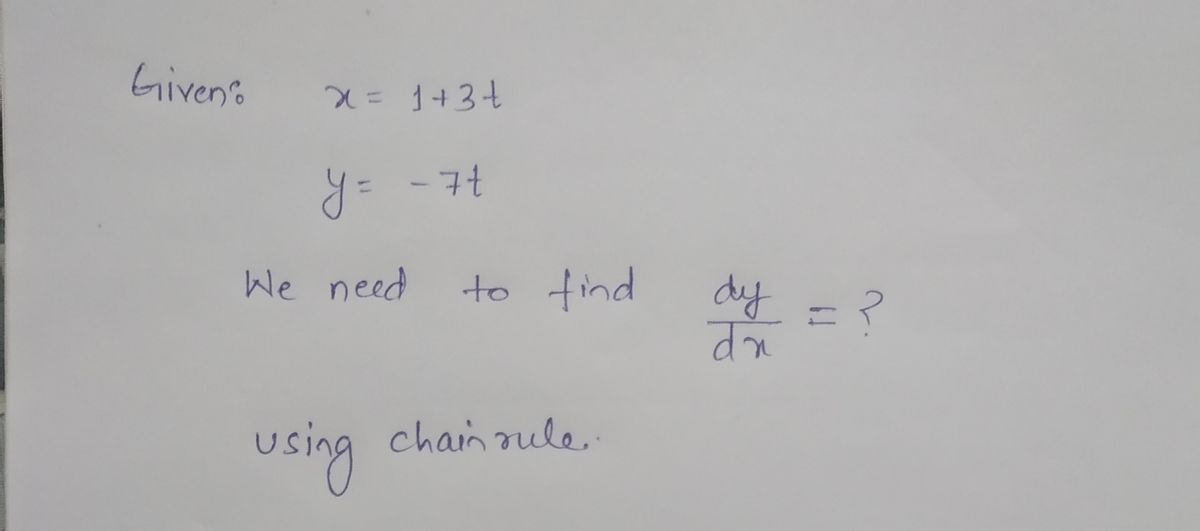 Given: x = 1+3t
y = -7t
We need to find dy/dx = ?
using chain rule.